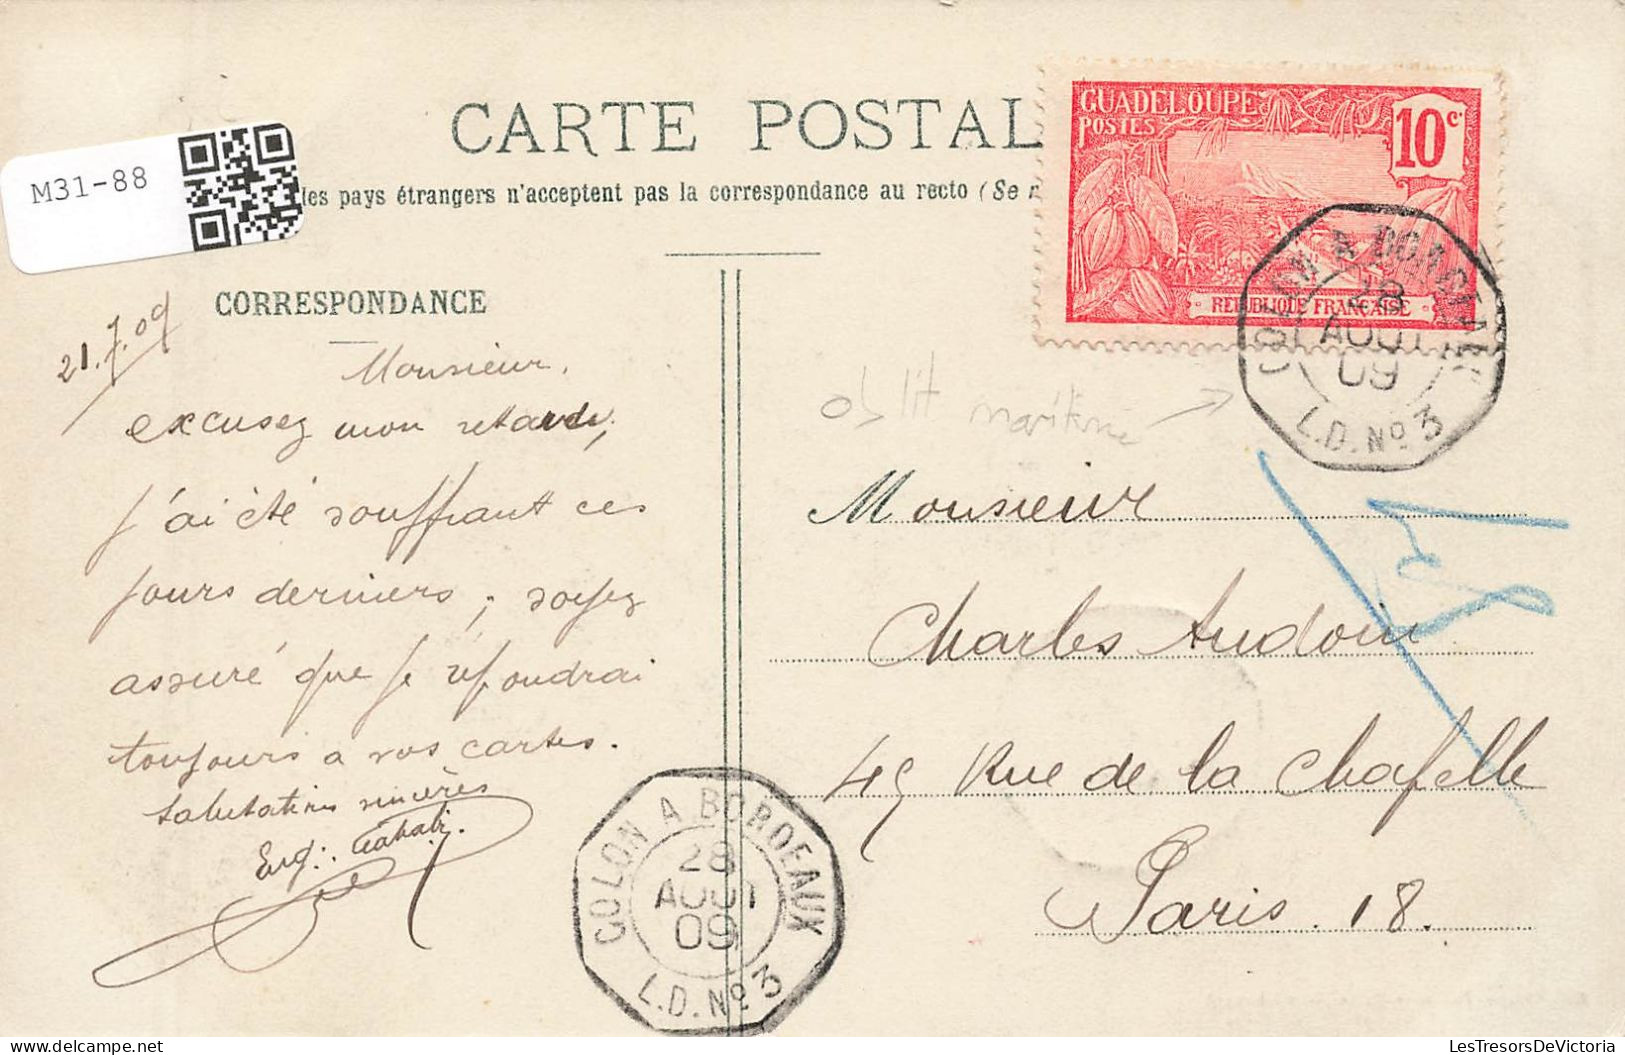 CARTE POSTAL
M31-88
les pays étrangers n'acceptent pas la correspondance au recto (Se r
GUADELOUPE
POSTES
10 c.
REPUBLIQUE FRANÇAISE
COLON A BORDEAUX
28
AOUT
09
L.D. No 3
CORRESPONDANCE
21.7.09
Monsieur,
excusez mon retard,
j'ai été souffrant ces
jours derniers; soyez
assuré que je répondrai
toujours à vos cartes.
Salutations sincères
Eug:
oblit maritime
Monsieur
Charles Audoin
45 Rue de la Chapelle
Paris. 18.
COLON A BORDEAUX
28
AOUT
09
L.D. No 3
LesTresorsDeVictoria